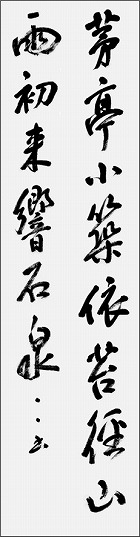 茅亭小築依苔徑山
雨初来響石泉